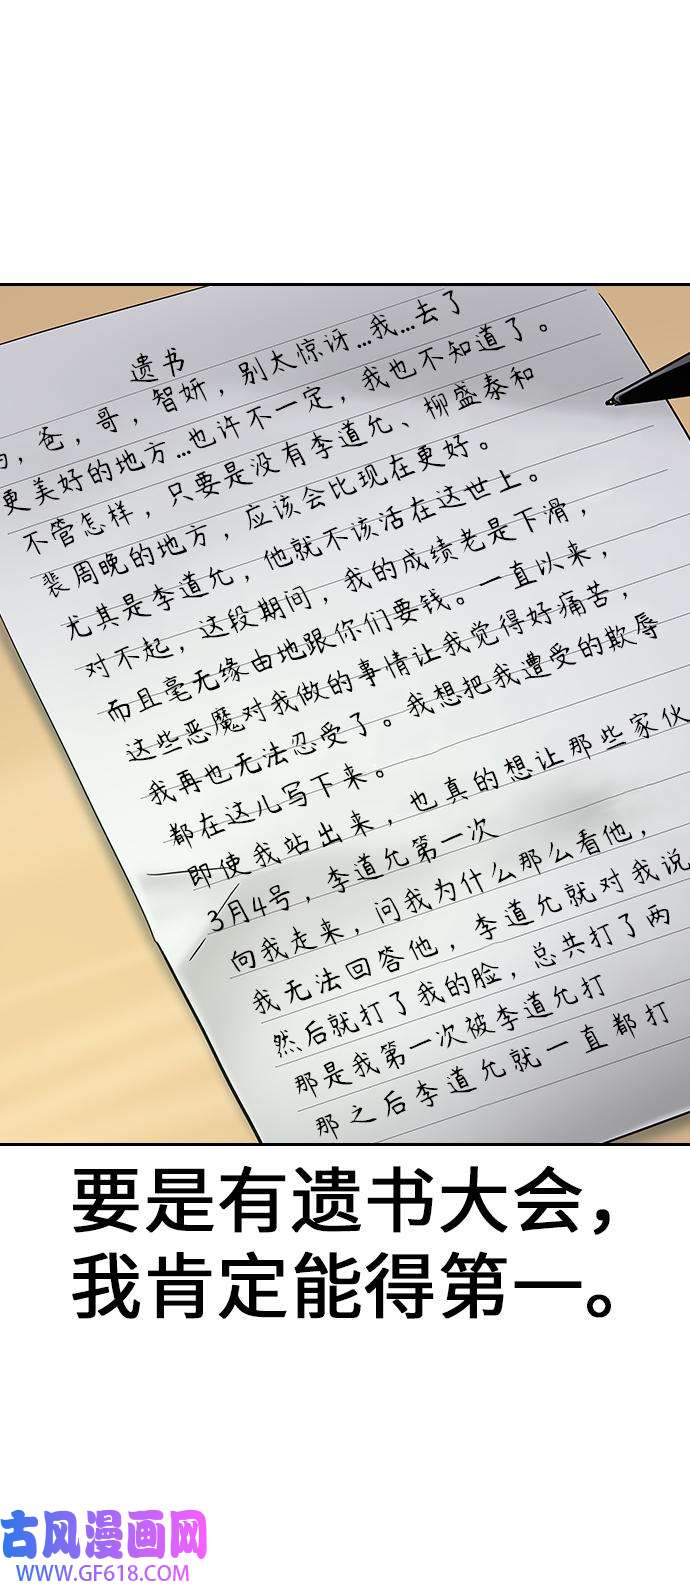 遗书
妈，爸，哥，智妍，别太惊讶...我...去了
更美好的地方...也许不一定，我也不知道了。
不管怎样，只要是没有李道允、柳盛泰和
裴周晚的地方，应该会比现在更好。
尤其是李道允，他就不该活在这世上。
对不起，这段期间，我的成绩老是下滑，
而且毫无缘由地跟你们要钱。一直以来，
这些恶魔对我做的事情让我觉得好痛苦，
我再也无法忍受了。我想把我遭受的欺辱
都在这儿写下来。
即使我站出来，也真的想让那些家伙
3月4号，李道允第一次
向我走来，问我为什么那么看他，
我无法回答他，李道允就对我说
然后就打了我的脸，总共打了两
那是我第一次被李道允打
那之后李道允就一直都打
要是有遗书大会，
我肯定能得第一。
古风漫画网
WWW.GF618.COM